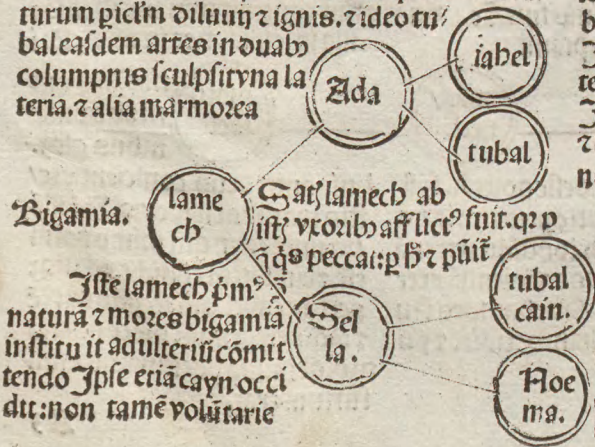 turum ꝑicl̃m diluuij ⁊ ignis. ⁊ ideo tu⸗
bal eaſdem artes in duabꝰ
columpnis ſculpſit vna la
teria. ⁊ alia marmorea
Ada
iabel
tubal
Bigamia.
lame
ch
Satꝫ lamech ab
iſtꝫ vxoribꝰ afflictꝰ fuit. qꝛ ꝑ
q̃ q̃s peccat: ꝑ h̃ ⁊ pũit̃
Iſte lamech p̃mꝰ ꝯ̃
naturã ⁊ mores bigamiã
inſtitu it adulteriũ cõmit
tendo Ipſe etiã cayn occi
dit: non tamẽ volũtarie
Sel
la.
tubal
cain.
Noe
ma.